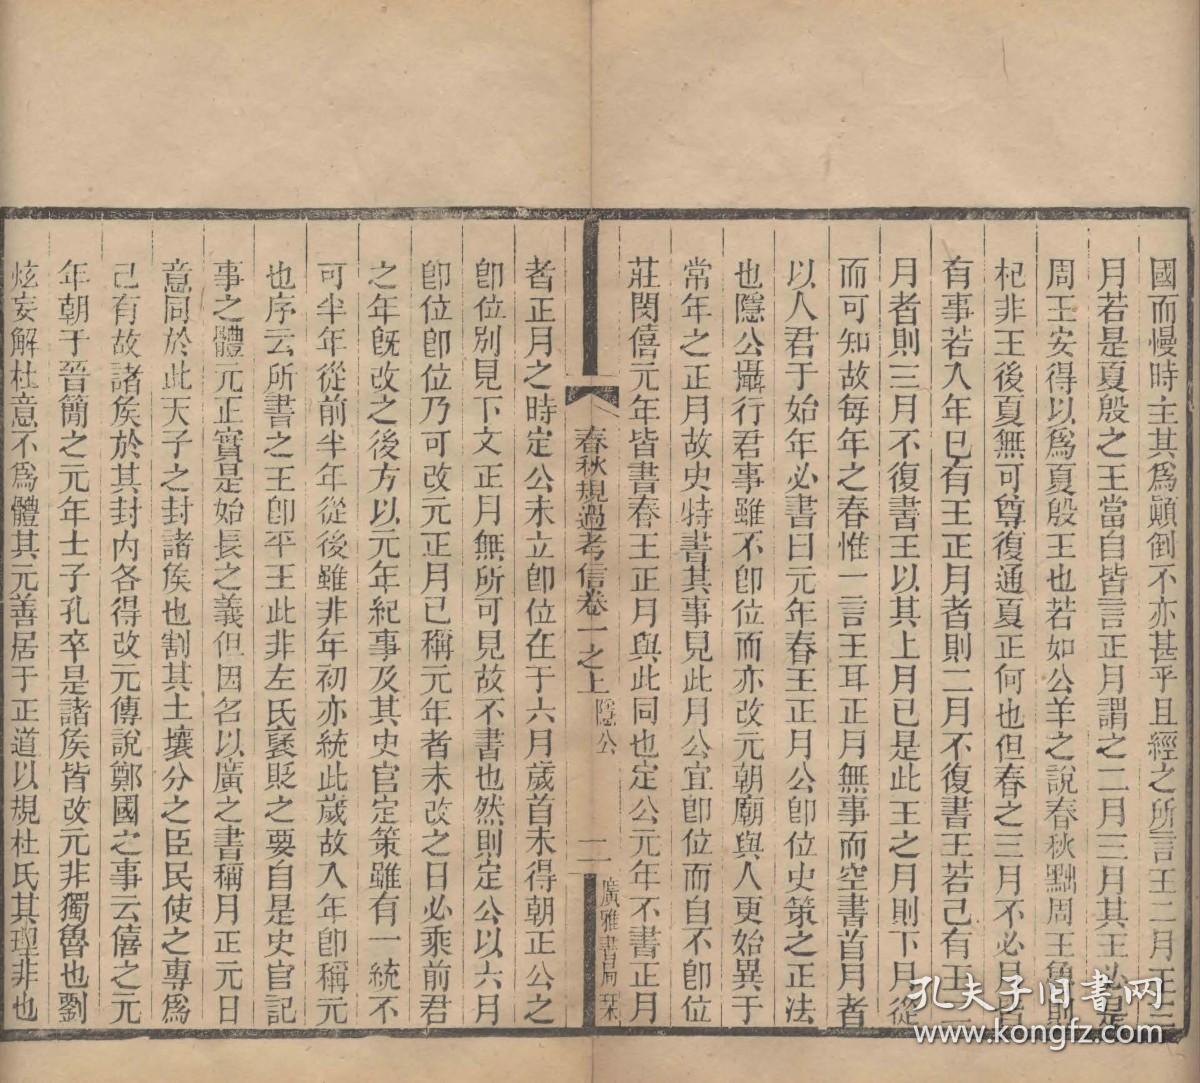 國而慢時主其爲顚倒不亦甚乎且經之所言王二月王三
月若是夏殷之王當自皆言正月謂之二月三月其王必是
周王安得以爲夏殷王也若如公羊之說春秋黜周王魯則
杞非王後夏無可尊復通夏正何也但春之三月不必月皆
有事若入年已有王正月者則二月不復書王若已有王二
月者則三月不復書王以其上月已是此王之月則下月從
而可知故每年之春惟一言王耳正月無事而空書首月者
以人君于始年必書曰元年春王正月公卽位史策之正法
也隱公攝行君事雖不卽位而亦改元朝廟與人更始異于
常年之正月故史特書其事見此月公宜卽位而自不卽位
莊閔僖元年皆書春王正月與此同也定公元年不書正月
春秋規過考信卷一之上 隱公 二 廣雅書局栞
者正月之時定公未立卽位在于六月歲首未得朝正公之
卽位別見下文正月無所可見故不書也然則定公以六月
卽位卽位乃可改元正月已稱元年者未改之日必乘前君
之年旣改之後方以元年紀事及其史官定策雖有一統不
可半年從前半年從後雖非年初亦統此歲故入年卽稱元
也序云所書之王卽平王此非左氏褒貶之要自是史官記
事之體元正實是始長之義但因名以廣之書稱月正元日
意同於此天子之封諸矦也割其土壤分之臣民使之專爲
己有故諸矦於其封内各得改元傳說鄭國之事云僖之元
年朝于晉簡之元年士子孔卒是諸矦皆改元非獨魯也劉
炫妄解杜意不爲體其元善居于正道以規杜氏其理非也
孔夫子旧书网
www.kongfz.com